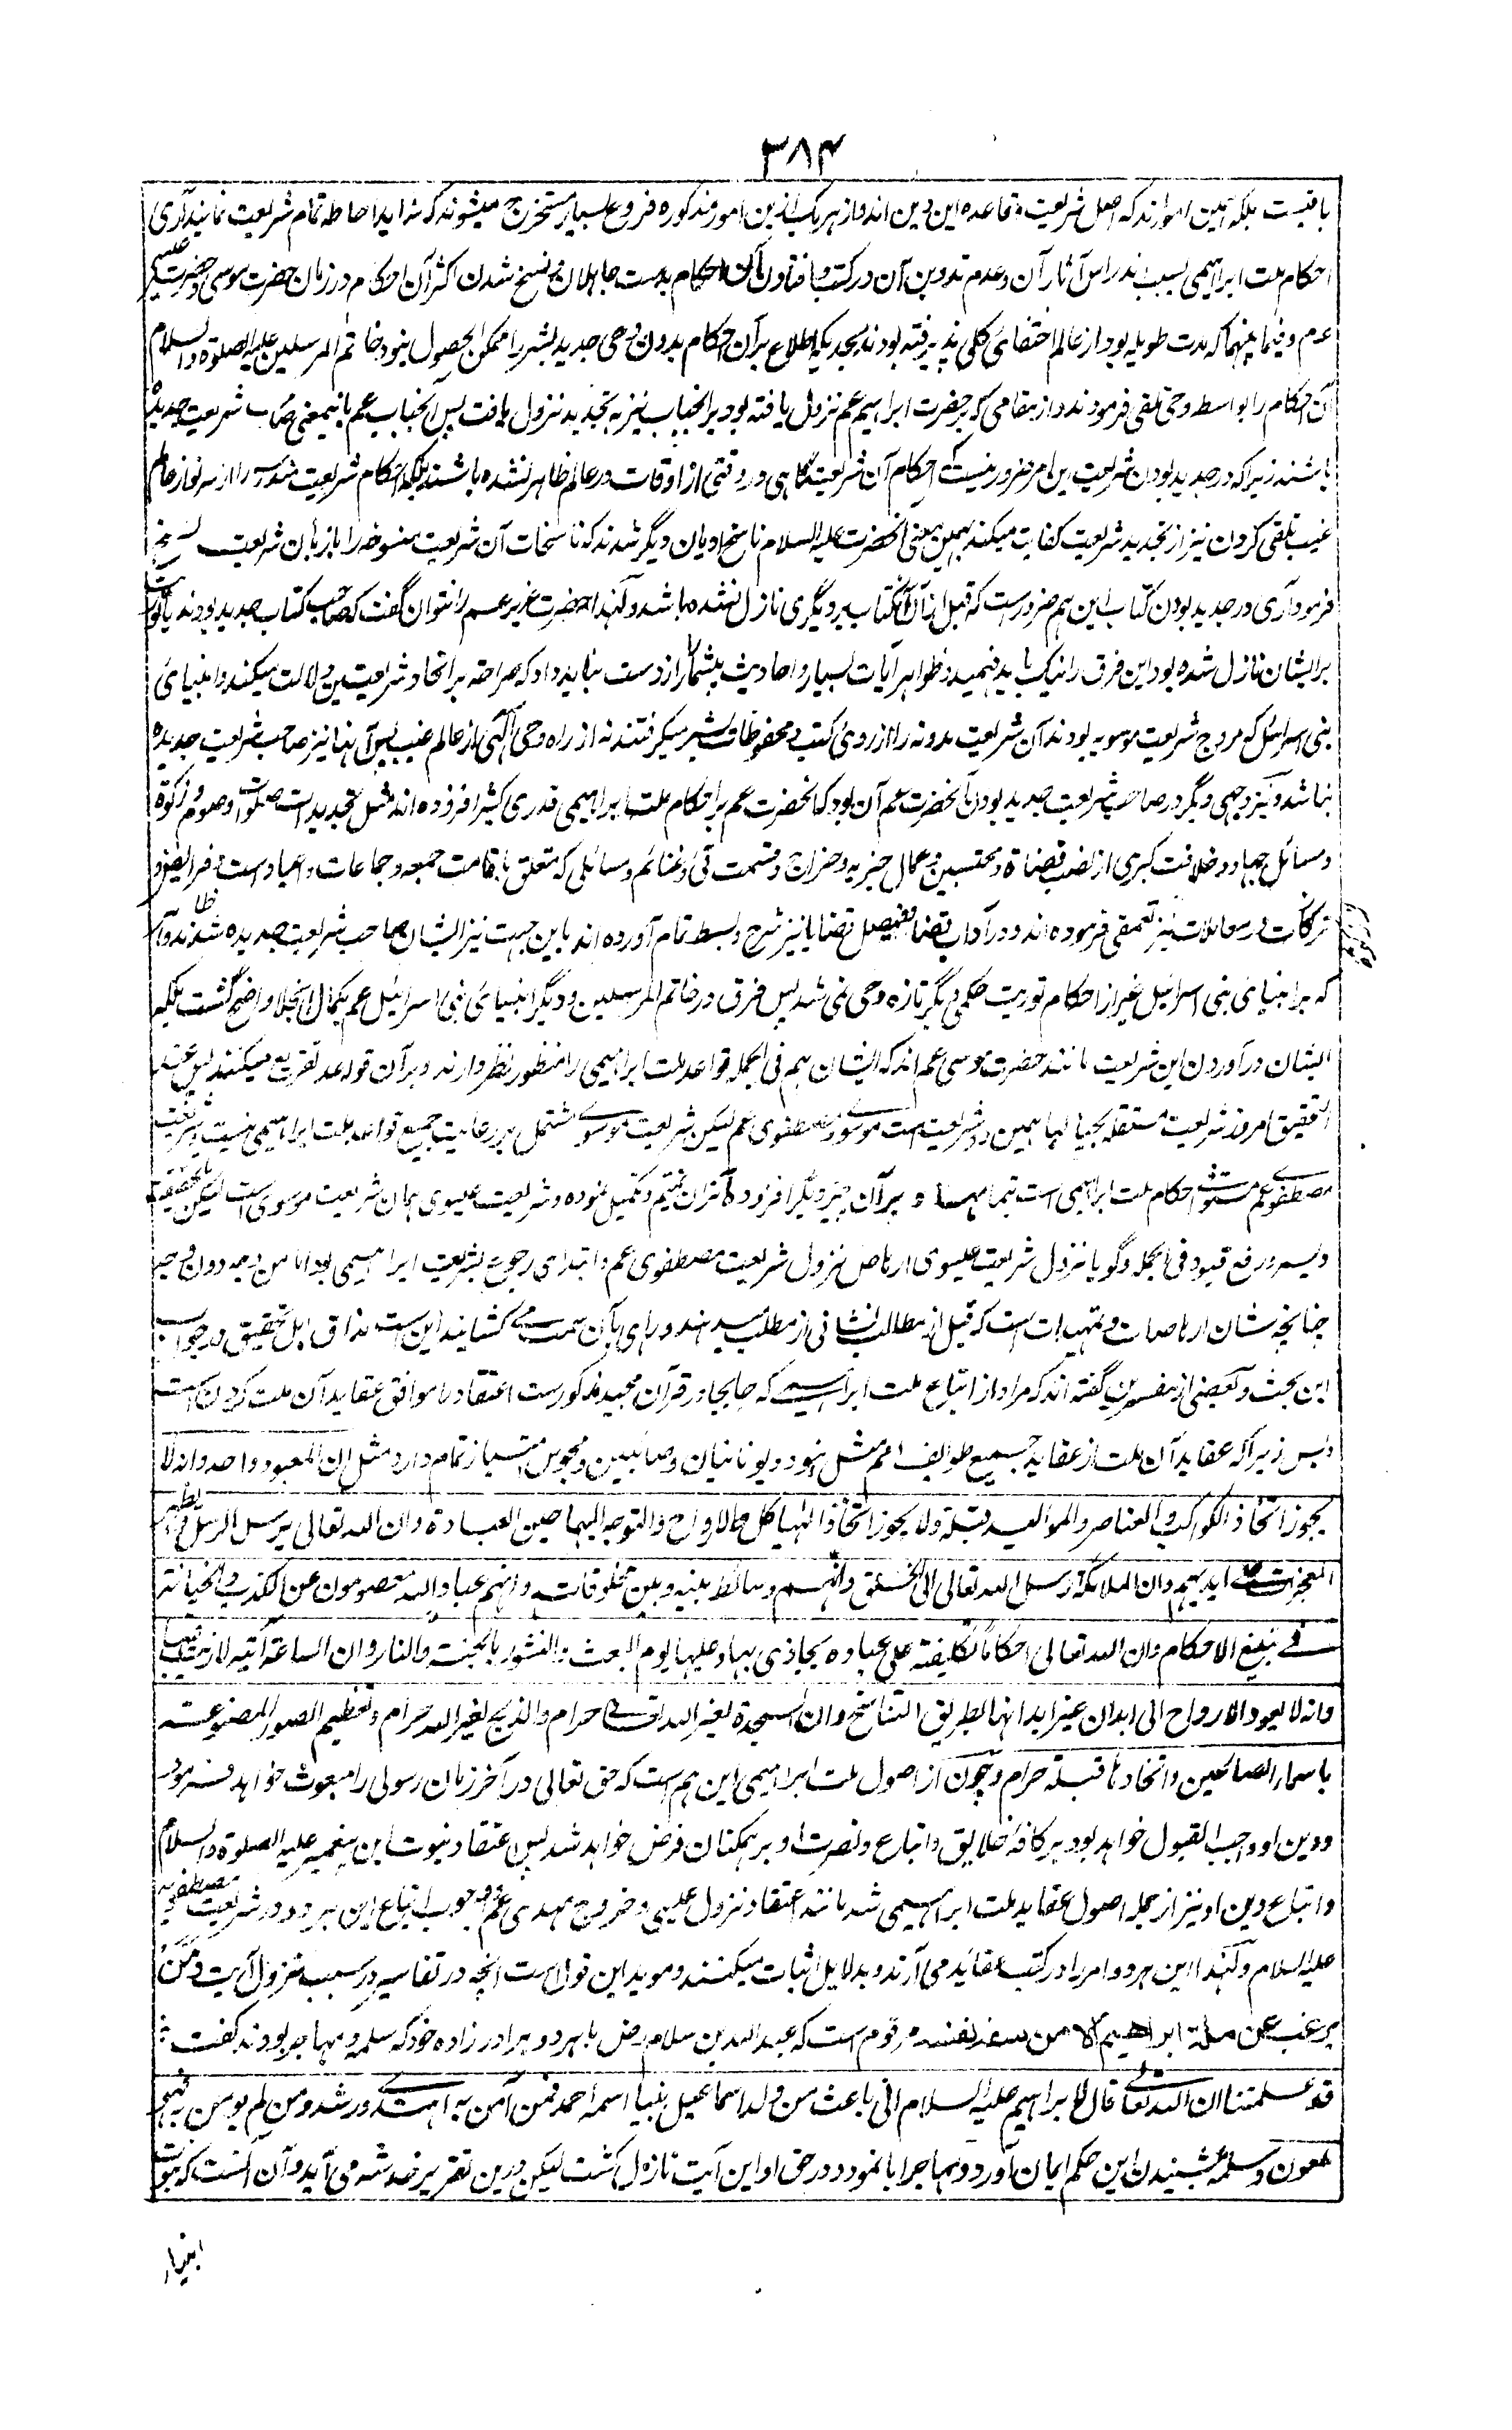 ۳۸۴
باقیست بلکه همین امور اند که اصل شریعت و قاعده این دین اند و از هر یک ازین امور مذکوره فروع بسیار مستخرج میشوند که شاید احاطه تمام شریعت نمایند آری
احکام ملت ابراهیمی بسبب اندراس آثار آن و عدم تدوین آن در کتب و افتادن آن احکام بدست جاهلان و نسخ شدن اکثر آن احکام در زمان حضرت موسی و حضرت عیسی
عم و فیما بینهما که مدت طویله بود از عالم اختفای کلی پذیرفته بودند بحدیکه اطلاع بر آن احکام بدون وحی جدید بشر را ممکن الحصول نبود خاتم المرسلین علیه الصلوة والسلام
آن احکام را بواسطه وحی تلقی فرمودند و از مقامی که بر حضرت ابراهیم عم نزول یافته بود بر آنجناب نیز به تجدید نزول یافت پس آنجناب عم باینمعنی صاحب شریعت جدیده
باشند زیرا که در جدید بودن شریعت این امر ضرور نیست که احکام آن شریعت گاهی در وقتی از اوقات در عالم ظاهر نشده باشند بلکه احکام شریعت مندرسه را از سر نو از عالم
غیب تلقی کردن نیز از تجدید شریعت کفایت میکند بهمین معنی آنحضرت علیه السلام ناسخ ادیان دیگر شدند که ناسخات آن شریعت منسوخه را باز بان شریعت نسخ
فرمود آری در جدید بودن کتاب این هم ضرور است که قبل از آن آن کتاب بر دیگری نازل نشده باشد و لهذا حضرت عزیر عم را نتوان گفت که صاحب کتاب جدید بودند یا توریت
بر ایشان نازل شده بود این فرق را نیک باید فهمید و ظواهر آیات بسیار و احادیث بیشمار را از دست نباید داد که صراحة بر اتحاد شریعتین دلالت میکنند و انبیای
بنی اسرائیل که مروج شریعت موسویه بودند آن شریعت مدونه را از روی کتب و محفوظات بشر میگرفتند نه از راه وحی الهی از عالم غیب پس آنها نیز صاحب شریعت جدیده
نباشند و نیز وجهی دیگر در صاحب شریعت جدید بودن آنحضرت عم آن بود که آنحضرت عم بر احکام ملت ابراهیمی قدری کثیر افزوده اند مثل تجدیدات صلوات و صوم و زکوة
و مسائل جهاد و خلافت کبری از نصب قضاة و محتسبین و عمال جزیه و خراج و قسمت فئ و غنائم و مسائلی که متعلق باقامت جمعه و جماعات و اعیاد است و فرایض و
ترکات و در معاملات نیز تعمقی فرموده اند و در آداب قضا و تفصیل قضایا نیز شرح و بسط تمام آورده اند باین جهت نیز ایشان صاحب شریعت جدیده شدند
که بر انبیای بنی اسرائیل غیر از احکام توریت حکمی دیگر تازه وحی نمی شد پس فرق در خاتم المرسلین و دیگر انبیای بنی اسرائیل عم بکمال انجلا واضح گشت بلکه
ایشان در آوردن این شریعت مانند حضرت موسی عم اند که ایشان هم فی الجمله قواعد ملت ابراهیمی را منظور نظر دارند و بر آن قواعد تفریع میکنند پس عند
التحقیق امروز شریعت مستقله بحیالها همین دو شریعت است موسوی و مصطفوی عم لیکن شریعت موسوی مشتمل بر رعایت جمیع قواعد ملت ابراهیمی نیست و شریعت
مصطفوی عم مستوفی احکام ملت ابراهیمی است بتمامها و بر آن چیز دیگر افزوده آنرا تتمیم و تکمیل نموده و شریعت عیسوی همان شریعت موسوی است لیکن با تخفیف
و یسر و رفع قیود فی الجمله و گویا نزول شریعت عیسوی ارهاص نزول شریعت مصطفوی عم و ابتدای رجوع بشریعت ابراهیمی بود اما من وجه دون وجه
چنانچه شان ارهاصات و تمهیدات است که قبل از مطالب نشانی از مطلب میدهند و راهی بآن سمت می کشایند این است مذاق اهل تحقیق در جواب
این بحث و بعضی از مفسرین گفته اند که مراد از اتباع ملت ابراهیمی که جابجا در قرآن مجید مذکور است اعتقاد را موافق عقاید آن ملت کردن است
و بس زیرا که عقاید آن ملت از عقاید جمیع طوایف امم مثل هنود و یونانیان و صائبین و مجوس امتیاز تمام دارد مثل ان المعبود واحد و انه لا
یجوز اتخاذ الکواکب و العناصر والموالید قبلة ولا یجوز اتخاذ الهیاکل للارواح والتوجه الیها حین العبادة وان الله تعالی یرسل الرسل و یظهر
المعجزات علی ایدیهم وان الملائکة رسل الله تعالی الی الخلق وانهم وسائط بینه و بین مخلوقاته و انهم عباد الله معصومون عن الکذب والخیانة
فی تبلیغ الاحکام وان الله تعالی احکاما تکلیفیة علی عباده یجازی بها و علیها یوم البعث والنشور بالجنة والنار وان الساعة آتیة لاریب فیها
وانه لا یعود الارواح الی ابدان غیر ابدانها بطریق التناسخ وان السجدة لغیر الله تعالی حرام والذبح لغیر الله حرام وتعظیم الصور المصنوعة
باسماء الصالحین واتخاذها قبلة حرام و چون از اصول ملت ابراهیمی این هم است که حق تعالی در آخر زمان رسولی را مبعوث خواهد فرمود
و دین او واجب القبول خواهد بود بر کافه خلایق و اتباع و نصرت او بر همکنان فرض خواهد شد پس اعتقاد نبوت این پیغمبر علیه الصلوة والسلام
و اتباع دین او نیز از جمله اصول عقاید ملت ابراهیمی شد مانند اعتقاد نزول عیسی و خروج مهدی عم و وجوب اتباع این هر دو در شریعت مصطفویه
علیه السلام و لهذا این هر دو امر را در کتب عقاید می آرند و بدلایل اثبات میکنند و موید این قول است آنچه در تفاسیر در سبب نزول آیت و من
یرغب عن ملة ابراهیم الا من سفه نفسه مرقوم است که عبد الله بن سلام رض با هر دو برادر زاده خود که سلمه و مهاجر بودند گفت
قد علمتما ان الله تعالی قال لابراهیم علیه السلام انی باعث من ولد اسماعیل نبیا اسمه احمد فمن آمن به اهتدی ورشد ومن لم یومن به فهو
ملعون و سلمه بشنیدن این حکم ایمان آورد و مهاجر ابا نمود و در حق او این آیت نازل گشت لیکن درین تقریر خدشه می آید و آن آنست که نبوت